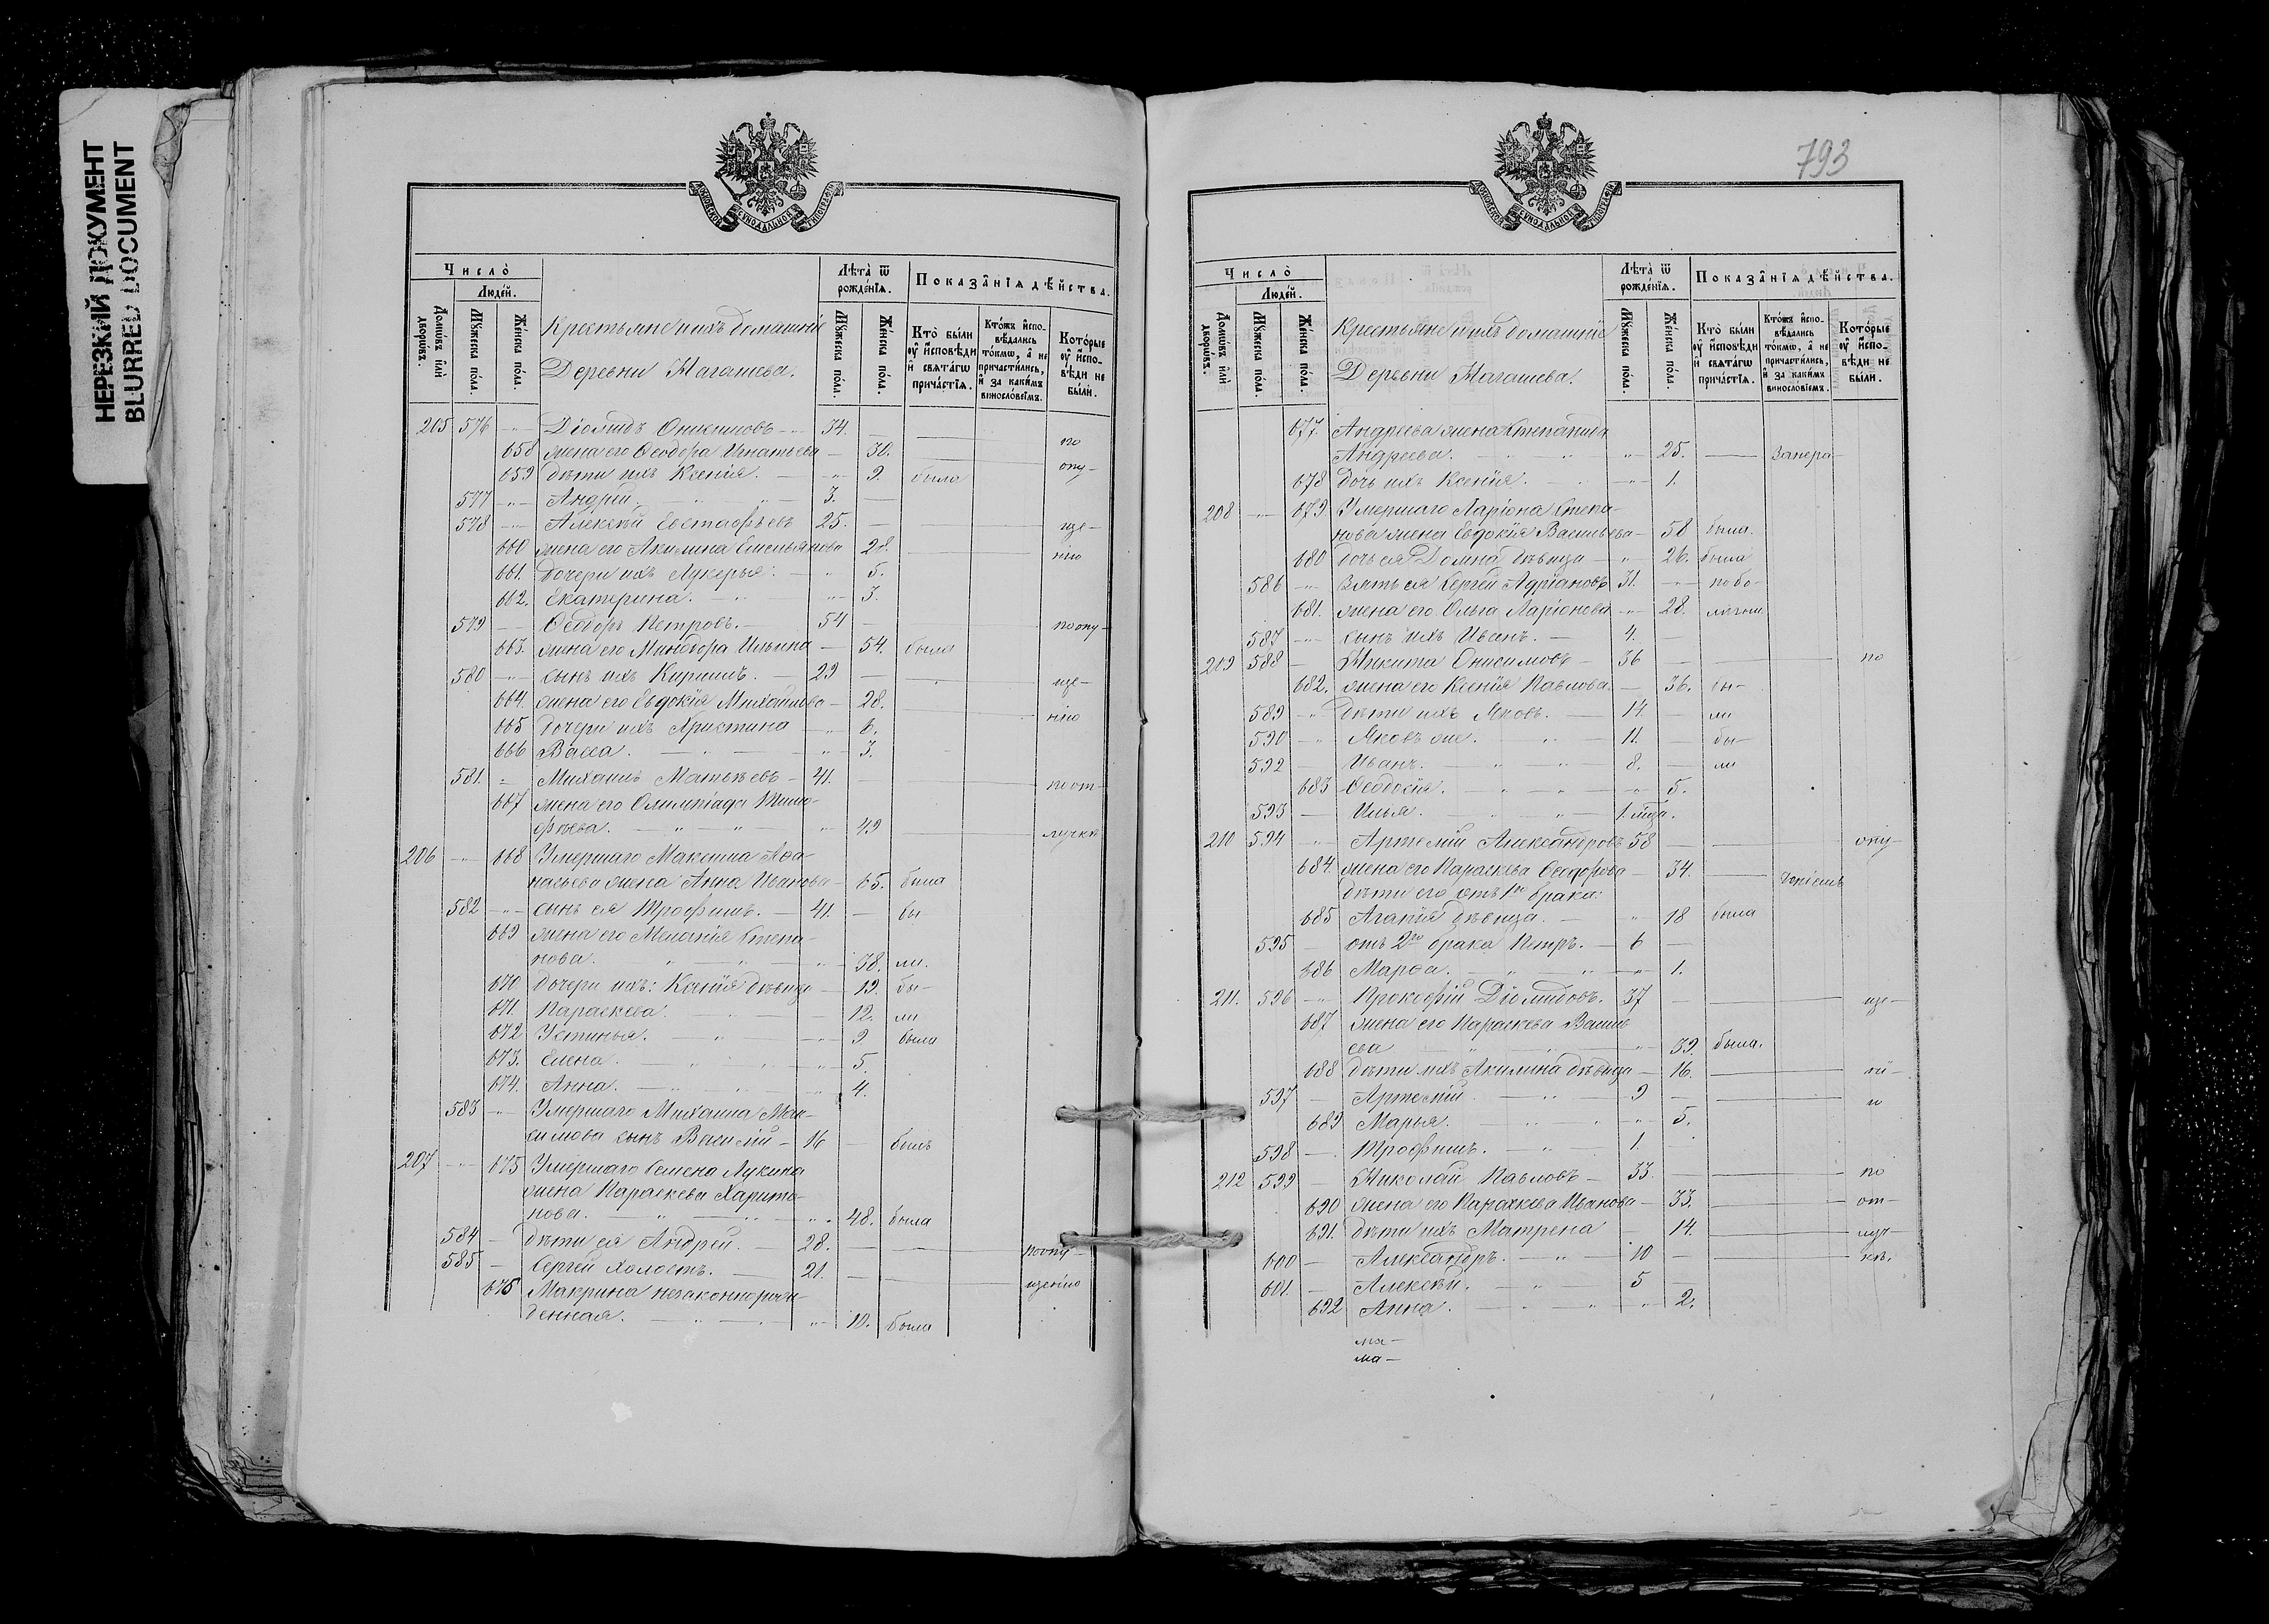 НЕРЕЗКИЙ ДОКУМЕНТ
BLURRED DOCUMENT
МОСКОВСКОЙ СѴНОДАЛЬНОЙ ТИПОГРАФІИ
Число̀
Людей.
Домѡвъ или дворѡвъ.
Мꙋжеска пола.
Женска пола.
Крестьяне и ихъ домашніе
Деревни
Лѣта ѿ рожденїѧ.
Мꙋжеска пола.
Женска пола.
Показанїѧ дѣйства.
Кто были ᲂу исповѣди и свѧтагѡ причастїѧ.
Ктожъ исповѣдались токмѡ, а не причастились, и за какимъ винословїемъ.
Которые ᲂу исповѣди не были.
205 576 Діомидъ Онисимовъ 34. по
658 жена его Ѳеодора Игнатьева 30.
659 дѣти ихъ Ксенія. 9. была опу-
577 Андрей 3.
578 Алексѣй Евстафьевъ 25. ще-
660 жена его Акилина Емельянова 28. нію
661. дочери ихъ Лукерья. 5.
662. Екатерина. 3.
579 Ѳеодоръ Петровъ. 54 по опу-
663. жена его Минодора Ильина 54. была
580 сынъ ихъ Кириллъ. 29 ще-
664. жена его Евдокія Михайлова 28. нію
665 дочери ихъ Христина 6.
666 Васса. 3.
581. Михаилъ Матвѣевъ 41. по от-
667 жена его Олимпіада Тимо-
фѣева. 49 лучкѣ
206 668 Умершаго Максима Аѳа-
насьева жена Анна Иванова 65. была
582 сынъ ея Трофимъ. 41. бы-
669 жена его Меланія Степа-
нова. 38. ли.
670 дочери ихъ: Ксенія дѣвица 19. бы-
671. Параскева. 12. ли
672 Устинья. 9. была
673. Елена. 5.
674. Анна. 4.
583 Умершаго Михаила Мак-
симова сынъ Василій 16 былъ
207 675 Умершаго Семена Лукина
жена Параскева Харито-
нова. 48. была
584 дѣти ея Андрей. 28. по опу-
585 Сергѣй холостъ. 21. щенію
676 Макрина незаконнорож-
денная. 10. была
793
МОСКОВСКОЙ СѴНОДАЛЬНОЙ ТИПОГРАФІИ
Число̀
Людей.
Домѡвъ или дворѡвъ.
Мꙋжеска пола.
Женска пола.
Крестьяне и ихъ домашніе
Деревни
Лѣта ѿ рожденїѧ.
Мꙋжеска пола.
Женска пола.
Показанїѧ дѣйства.
Кто были ᲂу исповѣди и свѧтагѡ причастїѧ.
Ктожъ исповѣдались токмѡ, а не причастились, и за какимъ винословїемъ.
Которые ᲂу исповѣди не были.
677. Андреева жена Степанида
Андреева. 25.
678 дочь ихъ Ксенія. 1.
208 679 Умершаго Ларіона Степа-
нова жена Евдокія Васильева 58 была.
680 дочь ея Домна дѣвица 26. была
586 зять ея Сергѣй Адріановъ 31. по бо-
681. жена его Ольга Ларіонова 28.
587 сынъ ихъ Иванъ. 4.
209 588 Никита Онисимовъ 36 по
682. жена его Ксенія Павлова. 36. бы-
589 дѣти ихъ Яковъ. 14. ли
590 Яковъ же. 11. бы-
592 Иванъ. 8. ли
683 Ѳеодосія. 5.
593 Илья. 1.
210 594 Артемій Александровъ 58 опу-
684. жена его Параскева Ѳеодорова 34.
дѣти его отъ 1го брака:
685 Агапія дѣвица. 18 была
595 отъ 2го брака Петръ. 6
686 Марѳа. 1.
211. 596 Прокофій Діомидовъ. 37 ще-
687 жена его Параскева Василь-
ева 39. была.
688 дѣти ихъ Акилина дѣвица 16. ні-
597 Артемій 9 ю
689 Марья. 5.
598 Трофимъ. 1.
212 599 Николай Павловъ 33. по
690 жена его Параскева Иванова 33. от-
691. дѣти ихъ Матрена 14. луч-
600 Александръ. 10 кѣ.
601. Алексѣй. 5
692 Анна. 2.
ма-